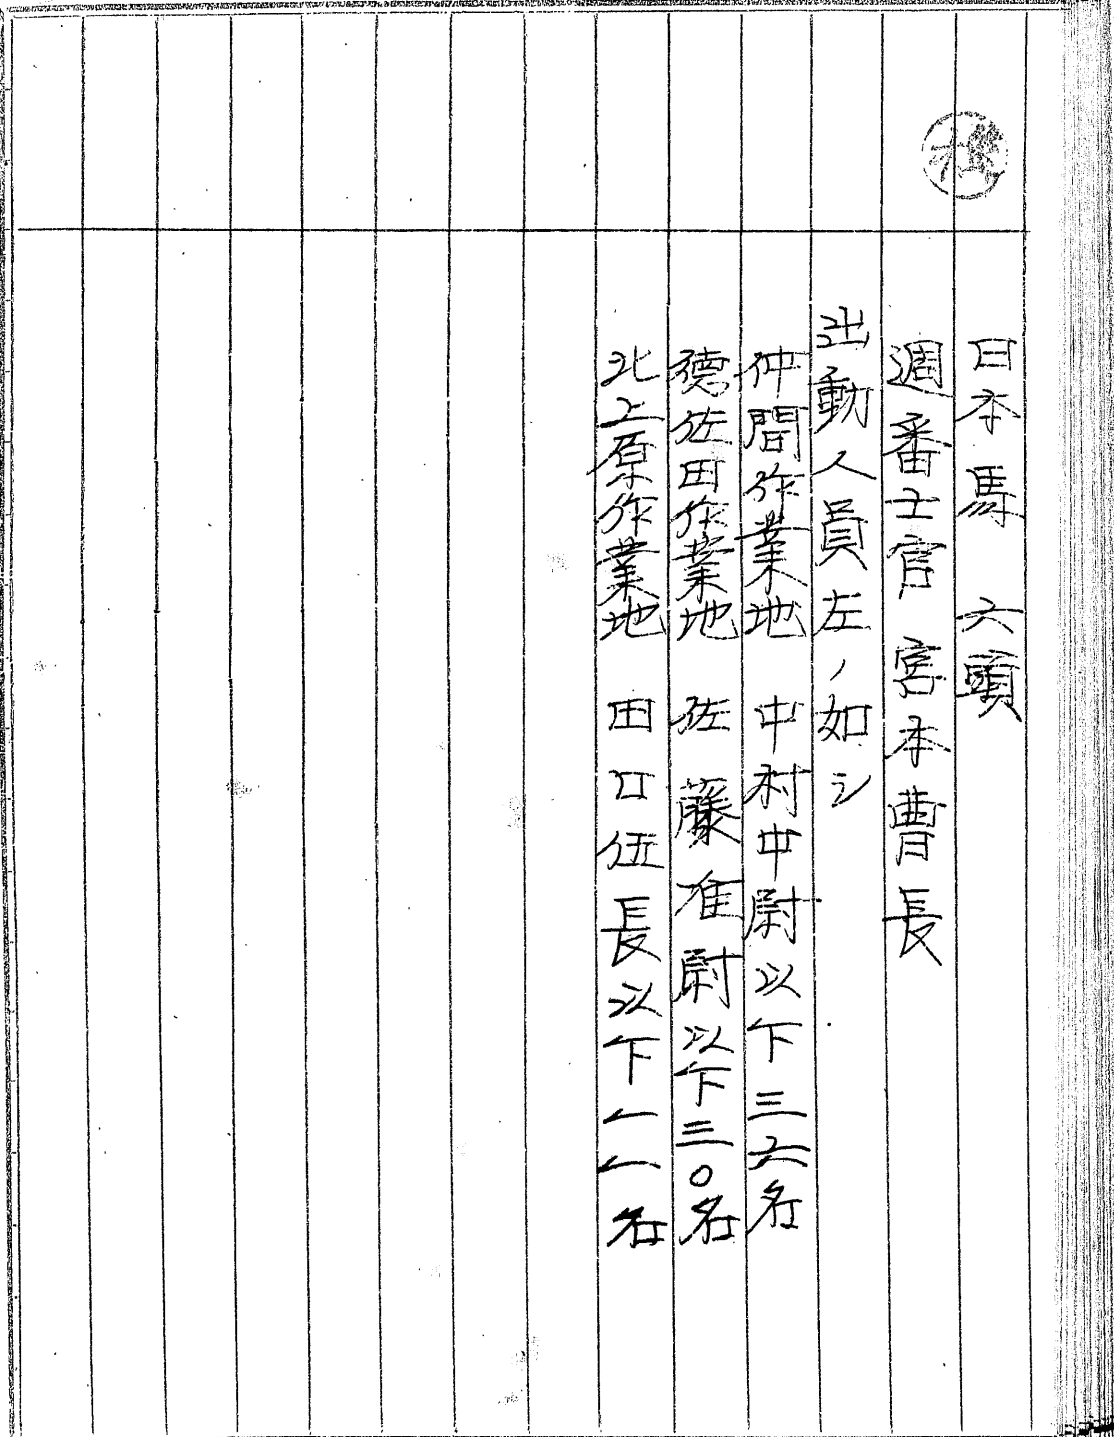 日本馬　六頭
週番士官　宮本曹長
出動人員左ノ如シ
仲間作業地　中村中尉以下三六名
德佐田作業地　佐藤准尉以下三〇名
北上原作業地　田口伍長以下一一名